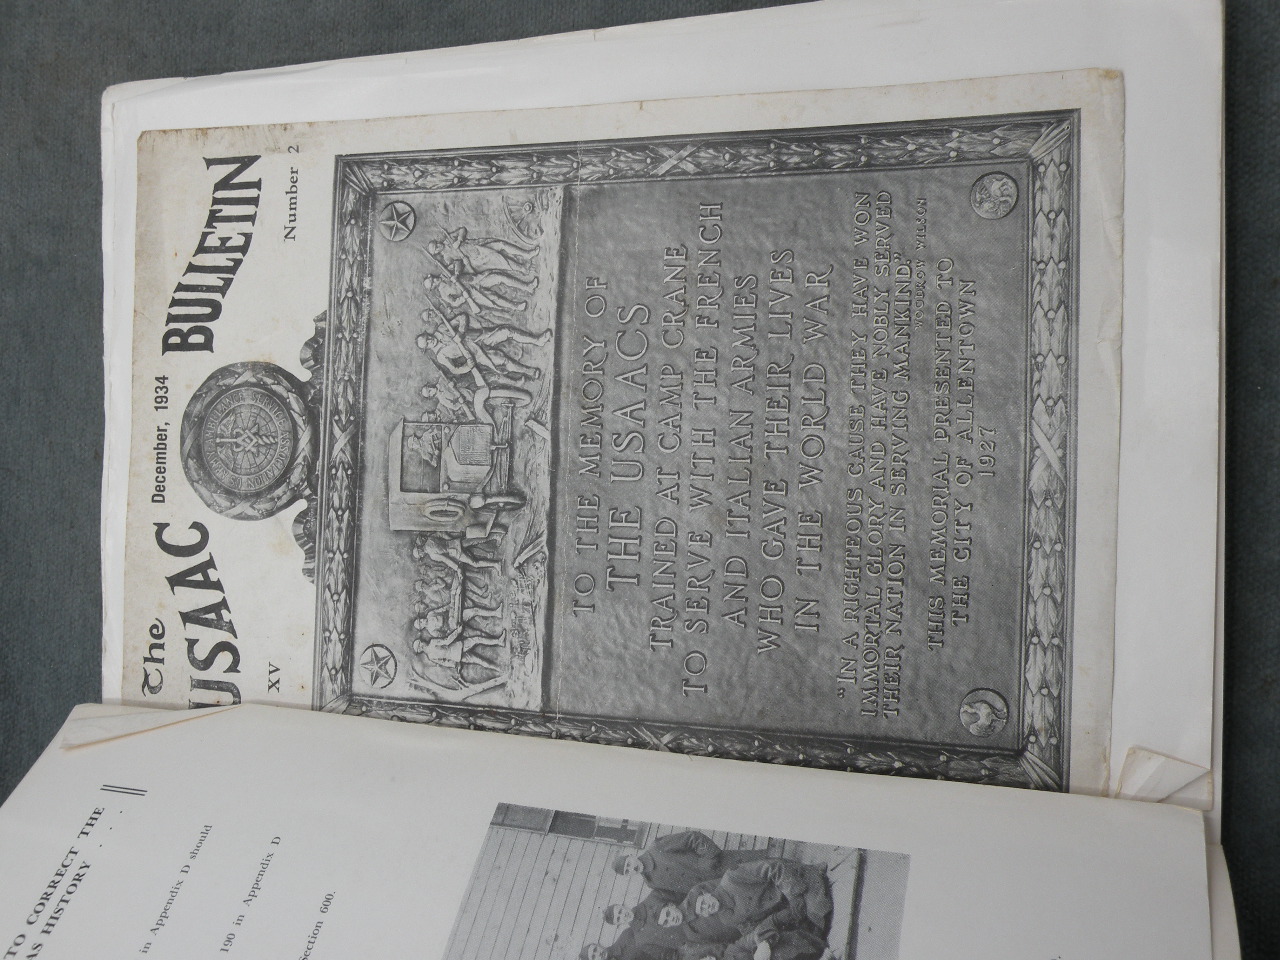 The
USAAC BULLETIN
December, 1934
XV
Number 2
TO THE MEMORY OF
THE USAACS
TRAINED AT CAMP CRANE
TO SERVE WITH THE FRENCH
AND ITALIAN ARMIES
WHO GAVE THEIR LIVES
IN THE WORLD WAR
"IN A RIGHTEOUS CAUSE THEY HAVE WON
IMMORTAL GLORY AND HAVE NOBLY SERVED
THEIR NATION IN SERVING MANKIND."
WOODROW WILSON
THIS MEMORIAL PRESENTED TO
THE CITY OF ALLENTOWN
1927
TO CORRECT THE
AS HISTORY . . .
in Appendix D should
190 in Appendix D
Section 600.